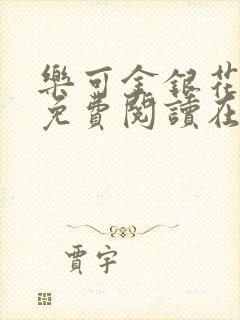 樂可金銀花
免費閱讀在
賈宇